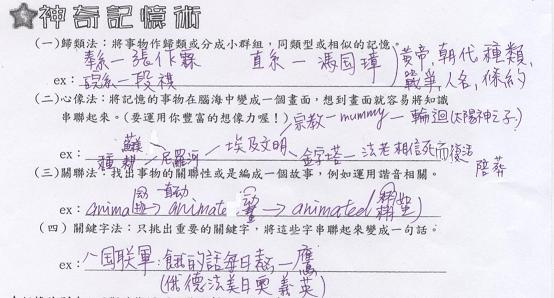 神奇記憶術
(一)歸類法：將事物作歸類或分成小群組，同類型或相似的記憶。
奉系—張作霖 直系—馮國璋 黃帝,朝代種類,
ex：皖系—段祺 戰爭,人名,條約
(二)心像法：將記憶的事物在腦海中變成一個畫面，想到畫面就容易將知識
串聯起來。(要運用你豐富的想像力喔！) 宗教—mummy—輪迴(太陽神之子?)
ex： 尼羅河 埃及文明 金字塔—法老相信死而復活
陪葬
(三)關聯法：找出事物的關聯性或是編成一個故事，例如運用諧音相關。
ex：animal→animate→animated
(四)關鍵字法：只挑出重要的關鍵字，將這些字串聯起來變成一句話。
ex：八国联軍:餓的話每日熬一鷹
(俄德法美日奧義英)